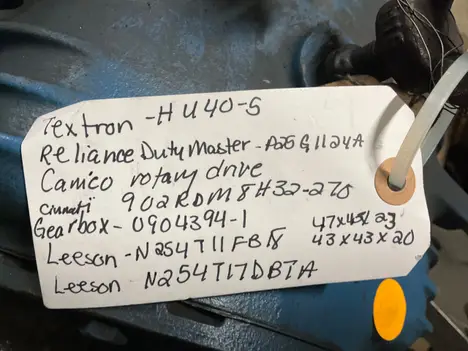 Textron - HU40-S
Reliance Duty Master - A25G1124A
Camco rotary drive
902RDM8H32-270
Gearbox - 0904394-1
47x45x23
43x43x20
Leeson - N254T11FB18
Leeson N254T17DBTA